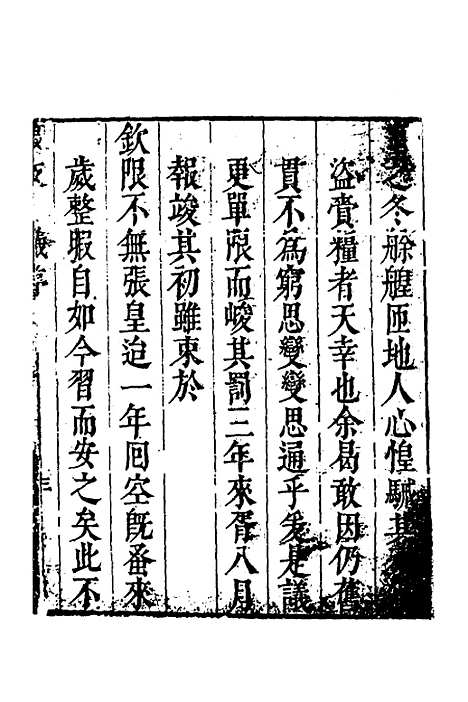 之冬艅艎匝地人心惶駴其
盜賫糧者天幸也余曷敢因仍舊
貫不為窮思變變思通乎爰是議
更單限而峻其罰三年來胥八月
報竣其初雖束於
欽限不無張皇迨一年囘空旣蚤來
歲整暇自如今習而安之矣此不
議